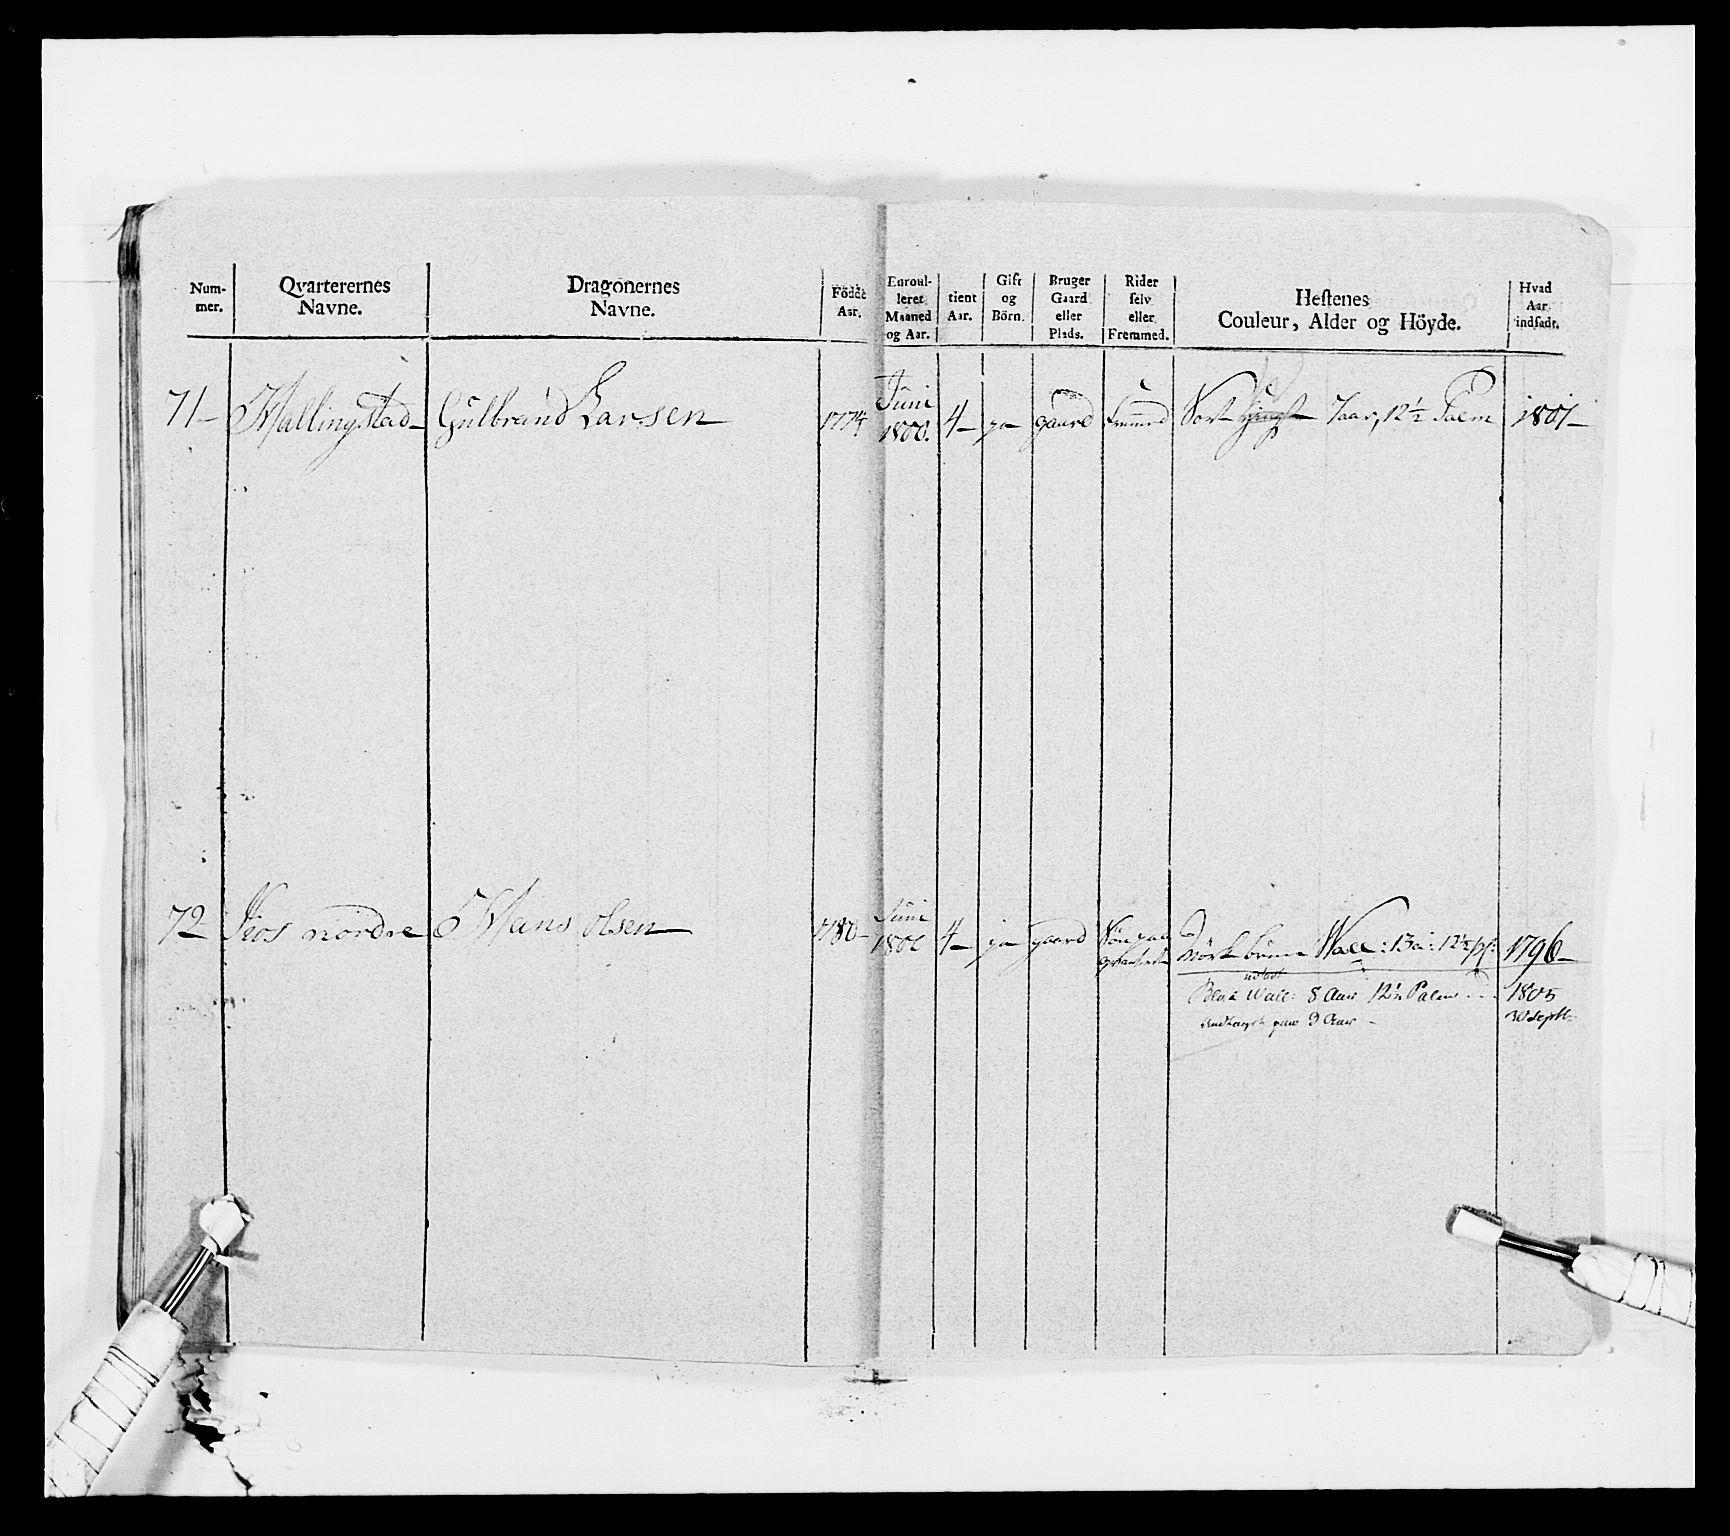 Num-
mer.
Qvarterernes
Navne.
Dragonernes
Navne.
Födde
Aar.
Enroul-
leret
Maaned
og Aar.
tient
Aar.
Gift
og
Börn.
Bruger
Gaard
eller
Plads.
Rider
selv
eller
Fremmed.
Hestenes
Couleur, Alder og Höyde.
Hvad
Aar
indsadt.
71 Mallingstad Gulbrand Larsen 1774 Juni
1800. 4 ja gaard Fremed Sort 7aar, 12½ Palm 1801
72 nordre Hans Olsen 1780 Juni
4 ja gaard Mörk bruun Wall: 13 a: 12½ pl: 1796
Wall: 8 Aar 12½ Palm 1805
9 Aar 30 Septb: